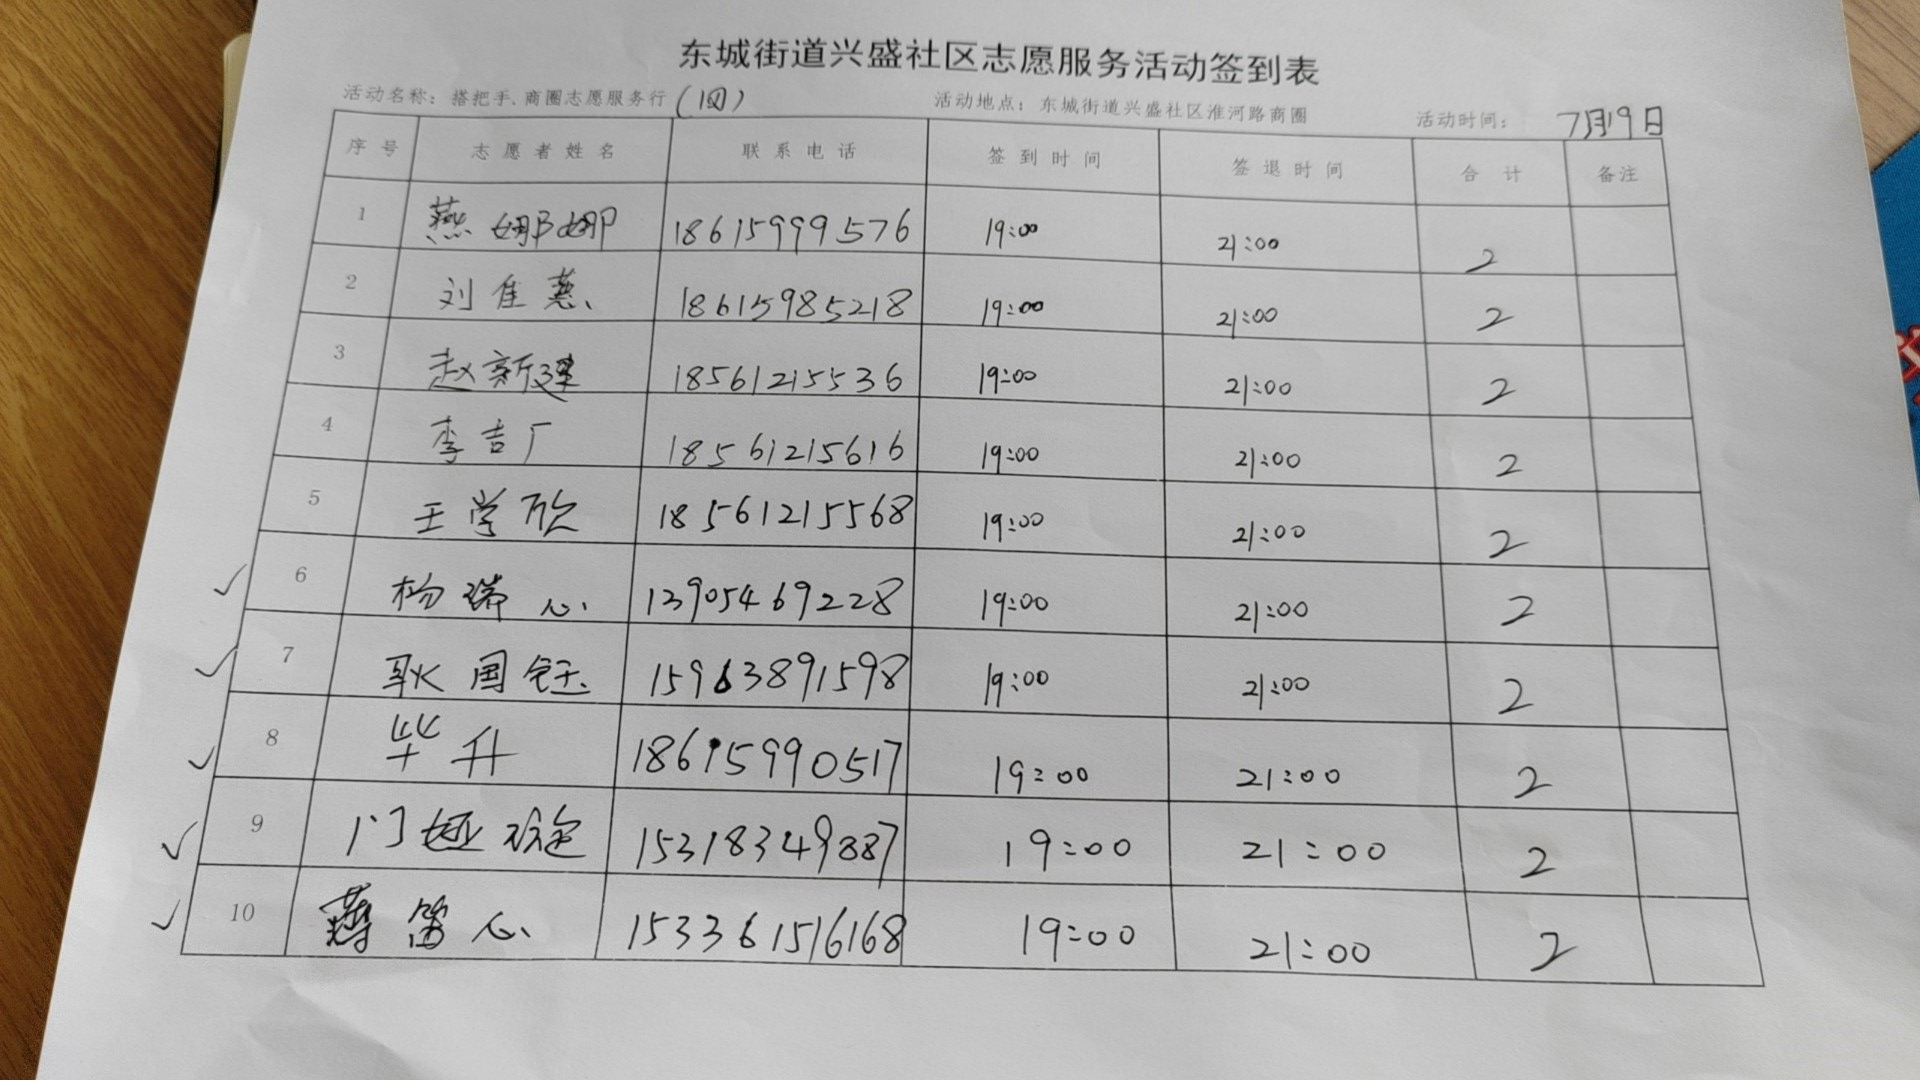 东城街道兴盛社区志愿服务活动签到表
活动名称：搭把手、商圈志愿服务行（四） 活动地点：东城街道兴盛社区淮河路商圈 活动时间：7月19日
序号 志愿者姓名 联系电话 签到时间 签退时间 合计 备注
1 燕娜娜 18615999576 19:00 21:00 2
2 刘佳慧 18615985218 19:00 21:00 2
3 赵新建 18561215536 19:00 21:00 2
4 李吉广 18561215616 19:00 21:00 2
5 王学欣 18561215568 19:00 21:00 2
✓ 6 杨瑞心 13905469228 19:00 21:00 2
✓ 7 耿国钰 15963891598 19:00 21:00 2
✓ 8 毕升 18615990517 19:00 21:00 2
✓ 9 门娅璇 15318349887 19:00 21:00 2
✓ 10 薄笛心 153361516168 19:00 21:00 2